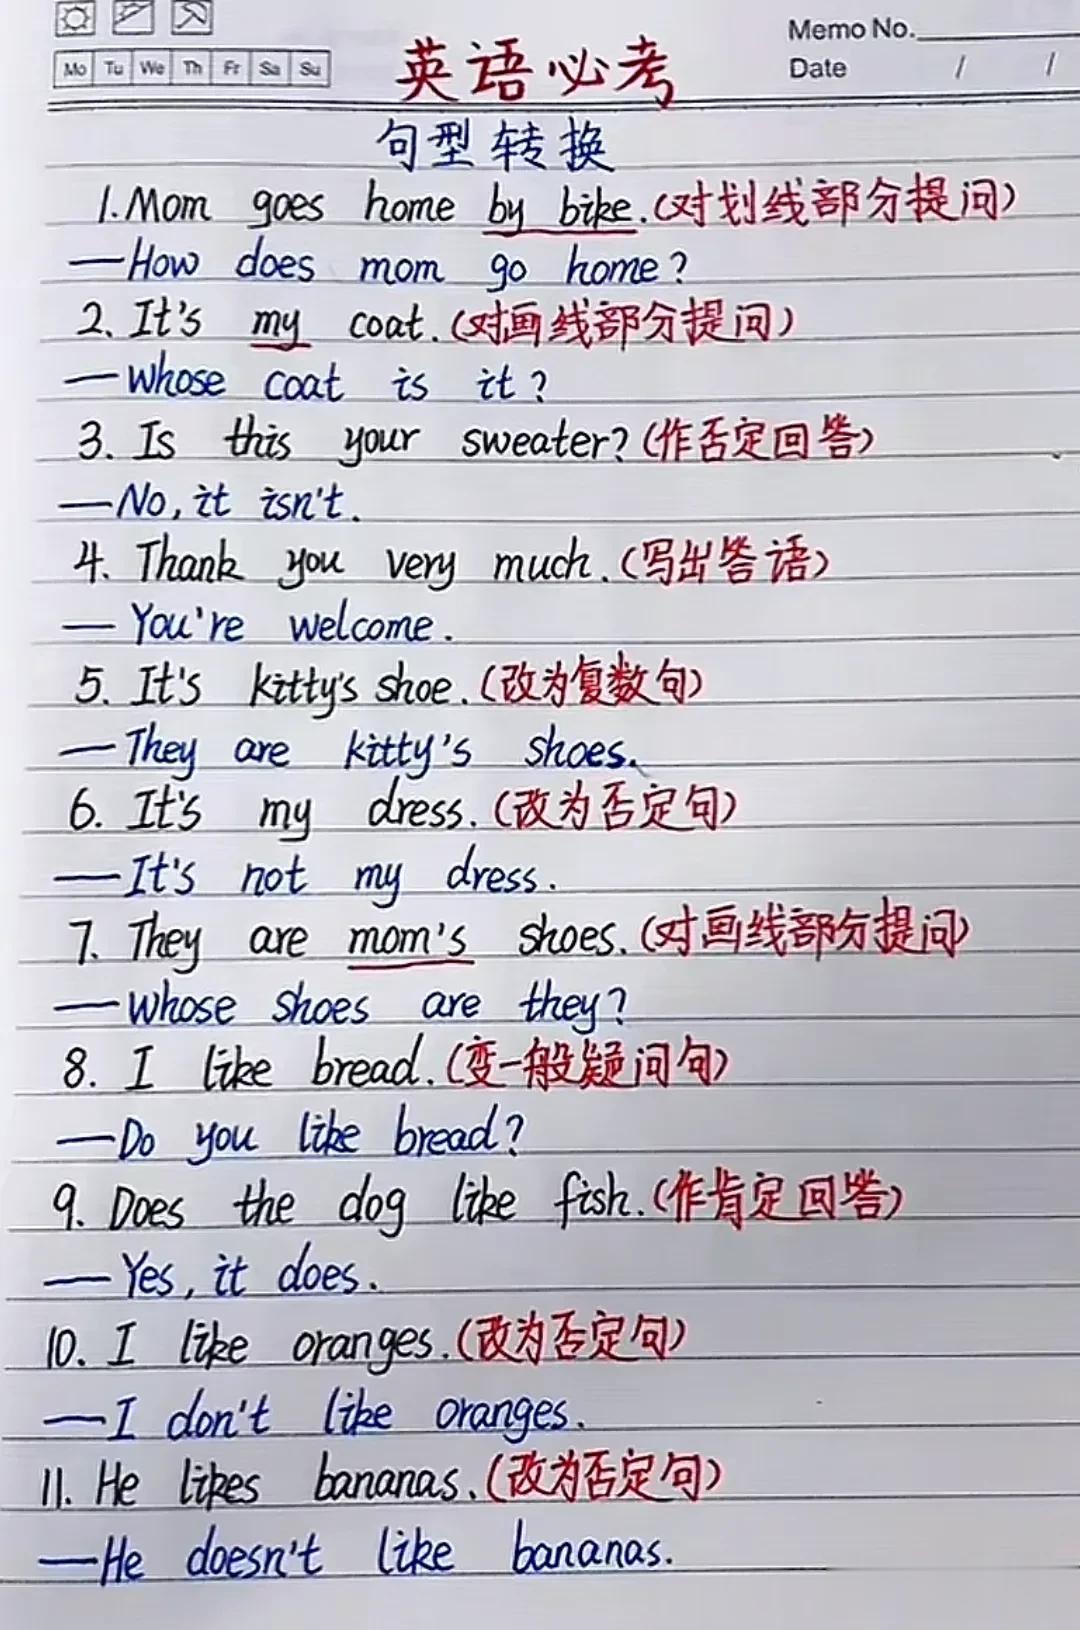 Memo No.
Mo Tu We Th Fr Sa Su
Date / /
英语必考
句型转换
1. Mom goes home by bike.(对划线部分提问)
—How does mom go home?
2. It's my coat.(对画线部分提问)
—Whose coat is it?
3. Is this your sweater?(作否定回答)
—No, it isn't.
4. Thank you very much.(写出答语)
—You're welcome.
5. It's kitty's shoe.(改为复数句)
—They are kitty's shoes.
6. It's my dress.(改为否定句)
—It's not my dress.
7. They are mom's shoes.(对画线部分提问)
—Whose shoes are they?
8. I like bread.(变一般疑问句)
—Do you like bread?
9. Does the dog like fish.(作肯定回答)
—Yes, it does.
10. I like oranges.(改为否定句)
—I don't like oranges.
11. He likes bananas.(改为否定句)
—He doesn't like bananas.